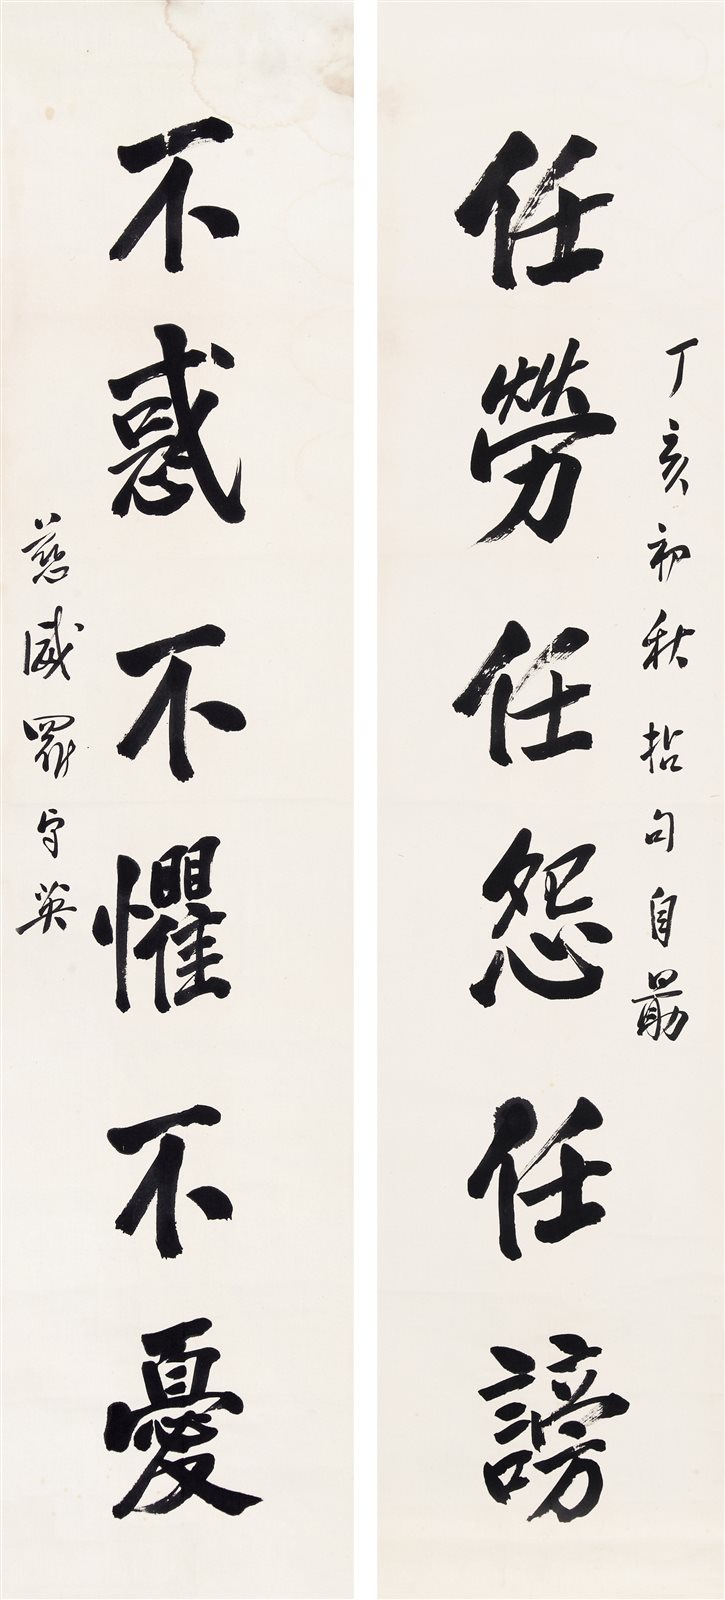 丁亥初秋拈句自勗
任勞任怨任謗
不惑不懼不憂
慈威羅守英